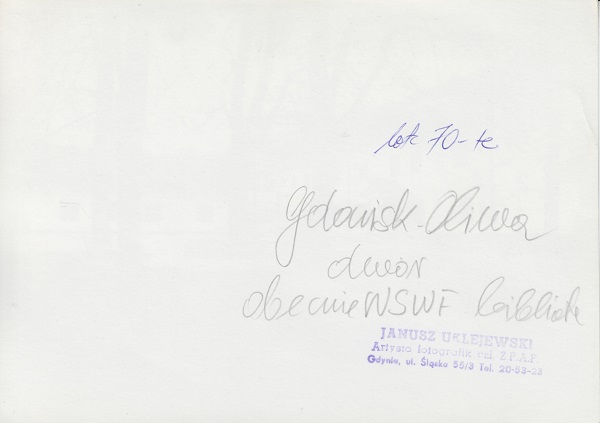 lata 70-te
Gdańsk-Oliwa
dwór
obecnie WSWF biblioteka
JANUSZ UKLEJEWSKI
Artysta fotografik czł. Z.P.A.F.
Gdynia, ul. Śląska 55/3 Tel. 20-53-23